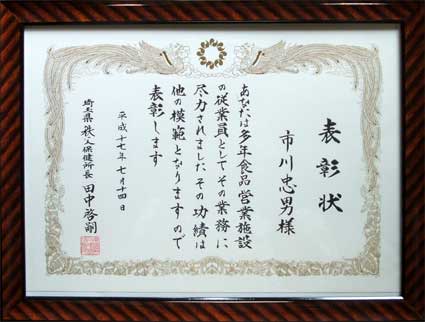 表彰状
市川忠男様
あなたは多年食品営業施設
の従業員としてその業務に
尽力されましたその功績は
他の模範となりますので
表彰します
平成十七年七月十四日
埼玉県秩父保健所長 田中啓剛